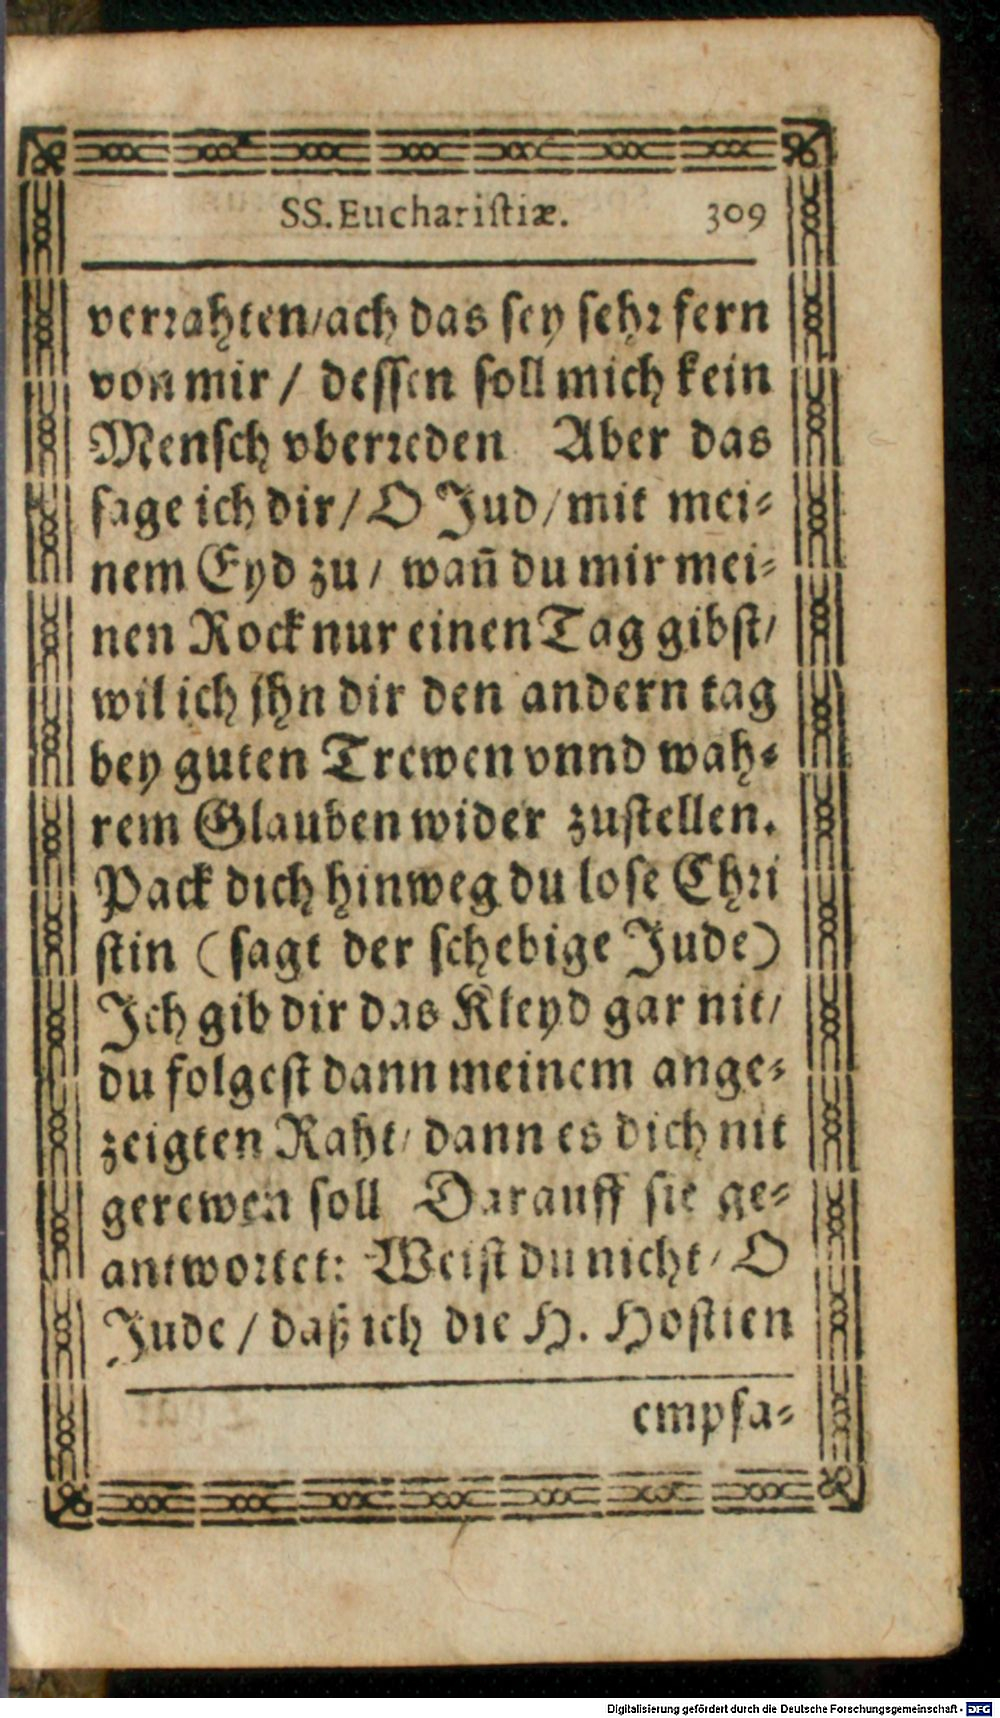 SS. Euchariſtiæ. 309
verrahten/ach das ſey ſehr fern
von mir / deſſen ſoll mich kein
Menſch vberreden Aber das
ſage ich dir/ O Jud/ mit mei-
nem Eyd zu / wañ du mir mei-
nen Rock nur einen Tag gibſt/
wil ich jhn dir den andern tag
bey guten Trewen vnnd wah-
rem Glauben wider zuſtellen.
Pack dich hinweg du loſe Chri
ſtin (ſagt der ſchebige Jude)
Ich gib dir das Kleyd gar nit/
du folgeſt dann meinem ange-
zeigten Raht/ dann es dich nit
gerewen ſoll Darauff ſie ge-
antwortet: Weiſt du nicht/ O
Jude / daß ich die H. Hoſtien
empfa-
Digitalisierung gefördert durch die Deutsche Forschungsgemeinschaft - DFG